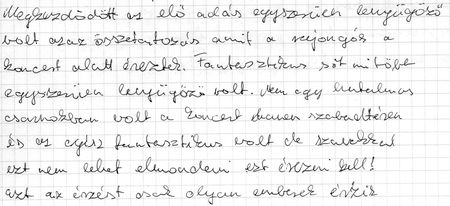 Megkezdődött az elő adás egyszerűen lenyűgöző
volt azaz összetartozás amit a rajongás a
koncert alatt éreztek. Fantasztikus sőt mi több
egyszerűen lenyűgöző volt. Nem egy hatalmas
csarnokban volt a koncert hanem szabadtéren
és az egész fantasztikus volt de szavakkal
ezt nem lehet elmondani ezt érezni kell!
ezt az érzést csak olyan emberek érzik